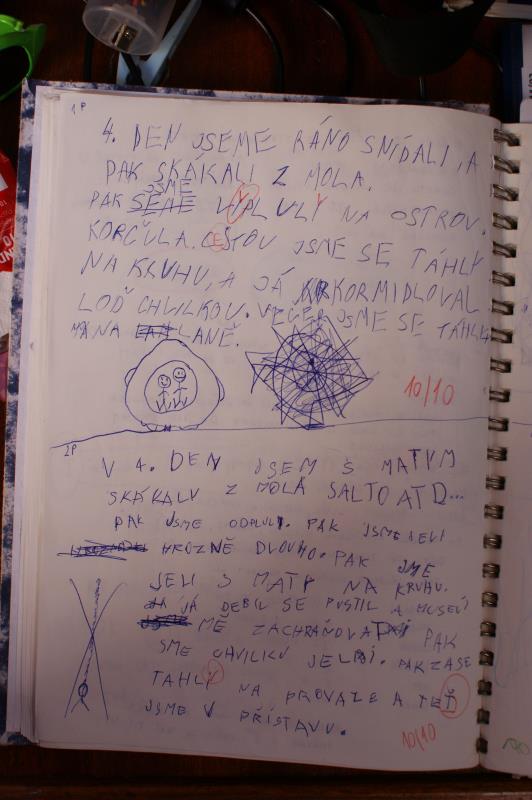 1P
4. DEN JSEME RÁNO SNÍDALI, A
PAK SKÁKALI Z MOLA.
JSME
PAK VYPLULY NA OSTROV.
KORČULA. CESTOU JSME SE TAHLY
NA KRUHU, A JÁ KORMIDLOVAL
LOĎ CHVILKOU. VEČER JSME SE TÁHLY
NA LANĚ.
10/10
2P
V 4. DEN JSEM S MATYM
SKÁKALY Z MOLA SALTO ATD...
PAK JSME ODPLULY. PAK JSME JELI
HROZNĚ DLOUHO. PAK JSME
JELI S MATY NA KRUHU.
JÁ DEBIL SE PUSTIL A MUSELI
MĚ ZACHRAŇOVAT PAK
SME CHVILKU JELI. PAK ZASE
TAHLY NA PROVAZE A TEĎ
JSME V PŘÍSTAVU.
10/10